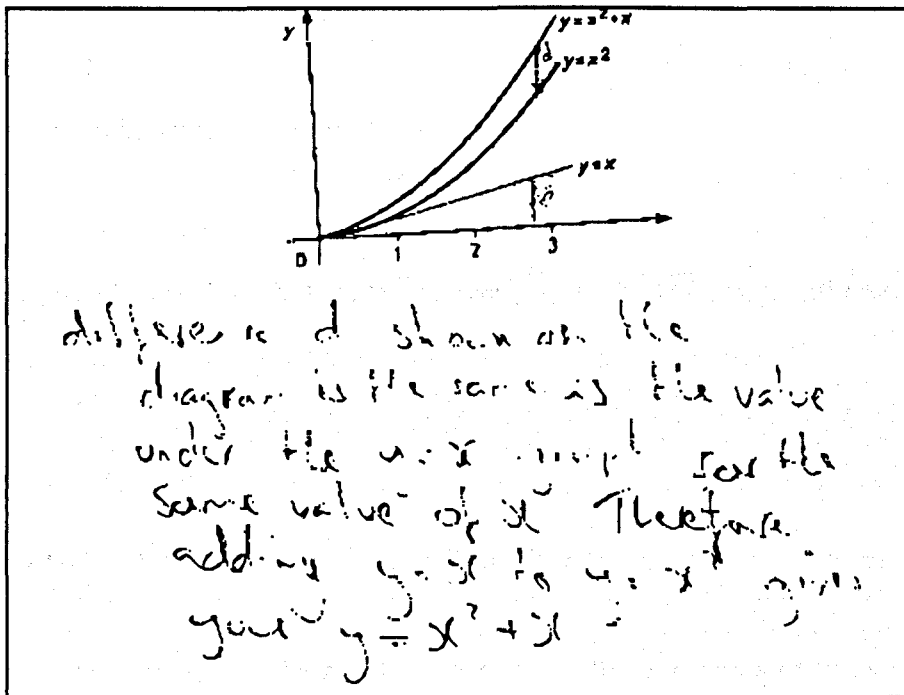 y
y=x²+x
d
y=x²
y=x
0 1 2 3
difference d shown on the
diagram is the same as the value
under the y=x graph for the
same value of x Therefore
adding y=x to y=x² gives
your y=x²+x